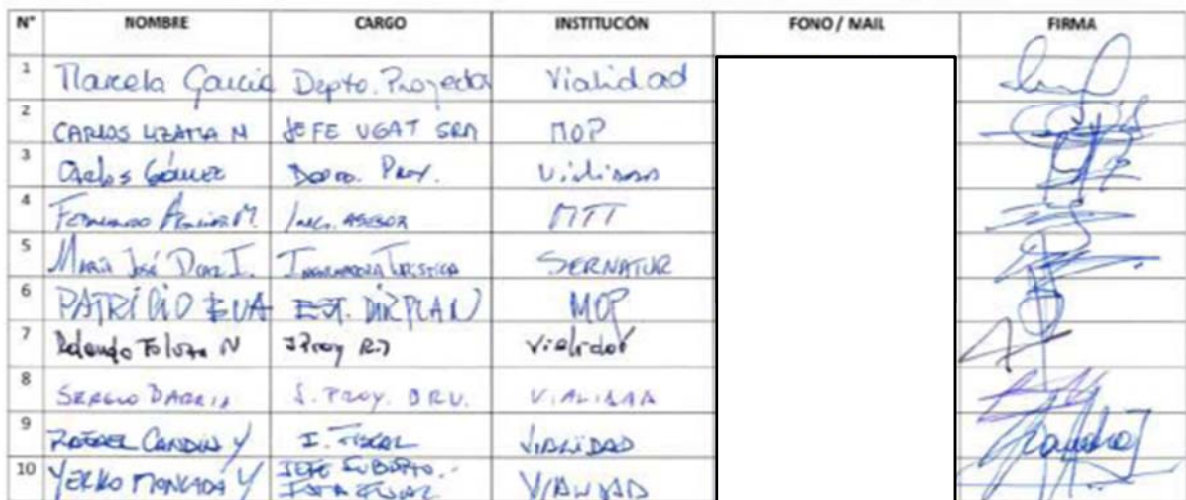 N° NOMBRE CARGO INSTITUCIÓN FONO / MAIL FIRMA
1 Marcela Garcia Depto. Proyectos Vialidad
2 CARLOS N JEFE UGAT SRM MOP
3 Carlos Gómez Depto. Proy. Vialidad
4 Fernando M. Ing. ASESOR MTT
5 María José Diaz I. Turística SERNATUR
6 PATRICIO EVA DIRPLAN MOP
7 Rolando N Vialidad
8 SERGIO BARRIA S. PROY. D.R.V. VIALIDAD
9 RAFAEL Y I. FISCAL VIALIDAD
10 YERKO MONCADA Y JEFE SUBDPTO. VIALIDAD